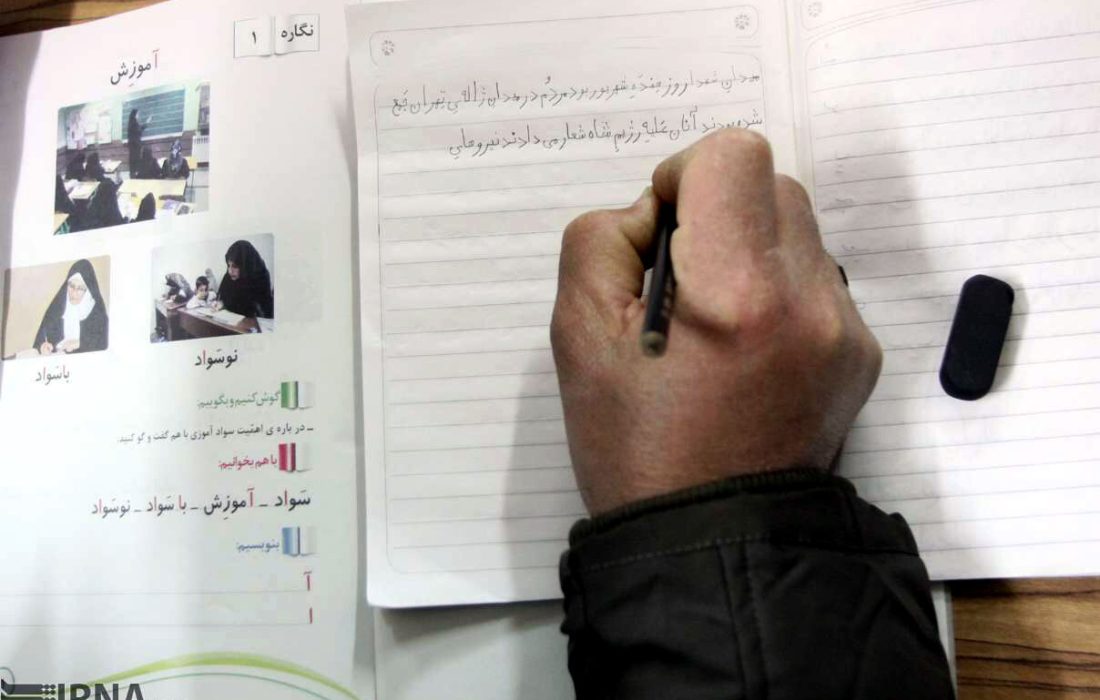 نگاره ۱
آموزِش
نوسَواد
باسَواد
گوش کنیم و بگوییم:
ـ در باره ی اهمّیت سواد آموزی با هم گفت و گو کنید.
با هم بخوانیم:
سَواد ـ آموزِش ـ با سَواد ـ نوسَواد
بنویسیم:
آ
ا
میدان شهدا روز شهریور بود مردُم در میدان ژاله ی تهران جمع
شده بودند آنان عَلیهِ رژیم شاه شعار می دادند نیروهای
IRNA